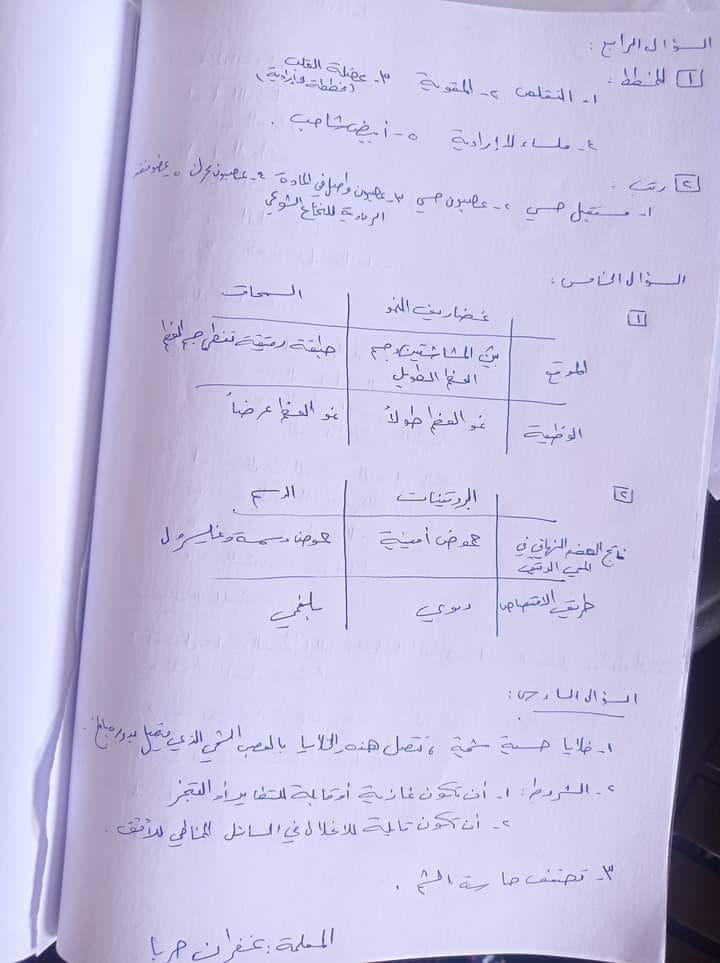 السؤال الرابع :
1 المخطط :
1- التقلص 2- المقوية 3- عضلة القلب (مخططة لاإرادية)
4- ملساء لا إرادية 5- أبيض شاحب .
2 رتب :
1- مستقبل حسي 2- عصبون حسي 3- عصبون واصل في المادة الرمادية للنخاع الشوكي 4- عصبون محرك 5- عضو منفذ
السؤال الخامس :
1
غضاريف النمو السمحاق
الموقع بين المشاشتين وجسم العظم الطويل طبقة رقيقة تغطي جسم العظم
الوظيفة نمو العظم طولاً نمو العظم عرضاً
2
البروتينات الدسم
ناتج الهضم النهائي في المعي الدقيق حموض أمينية حموض دسمة وغليسرول
طريق الامتصاص دموي بلغمي
السؤال السادس :
1- خلايا حسية شمية ، تتصل هذه الخلايا بالعصب الشمي الذي يتصل بدوره بالمخ .
2- الشروط : 1- أن تكون غازية أو قابلة للتطاير أو التبخر
2- أن تكون قابلة للانحلال في السائل المخاطي للأنف .
3- تضعف حاسة الشم .
المعلمة : غفران حربا